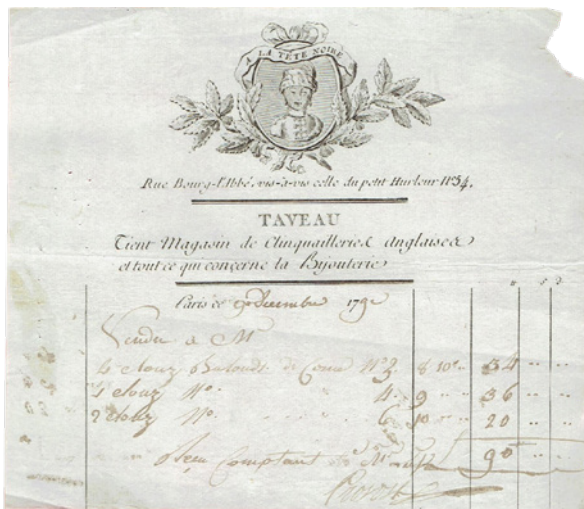 A LA TÊTE NOIRE
Rue Bourg-l'Abbé, vis-à-vis celle du petit Hurleur N°54.
TAVEAU
Tient Magasin de Clinquailleries Anglaises
et tout ce qui concerne la Bijouterie
Paris ce Decembre 179
Vendu a M
4 clouz de N°3. 8 10 34
4 clouz N°. 4. 9 36
2 clouz N°. 6. 10 20
Reçu Comptant 90